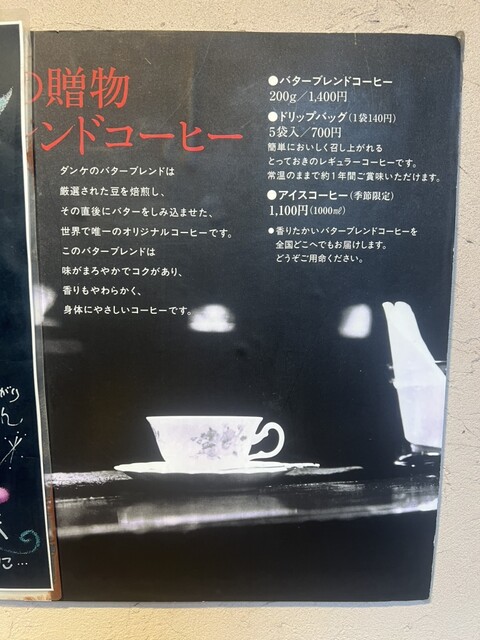 の贈物
レンドコーヒー
ダンケのバターブレンドは
厳選された豆を焙煎し、
その直後にバターをしみ込ませた、
世界で唯一のオリジナルコーヒーです。
このバターブレンドは
味がまろやかでコクがあり、
香りもやわらかく、
身体にやさしいコーヒーです。
●バターブレンドコーヒー
200g／1,400円
●ドリップバッグ(1袋140円)
5袋入／700円
簡単においしく召し上がれる
とっておきのレギュラーコーヒーです。
常温のままで約1年間ご賞味いただけます。
●アイスコーヒー(季節限定)
1,100円(1000㎥)
●香りたかいバターブレンドコーヒーを
全国どこへでもお届けします。
どうぞご用命ください。
がり
ん
こ…